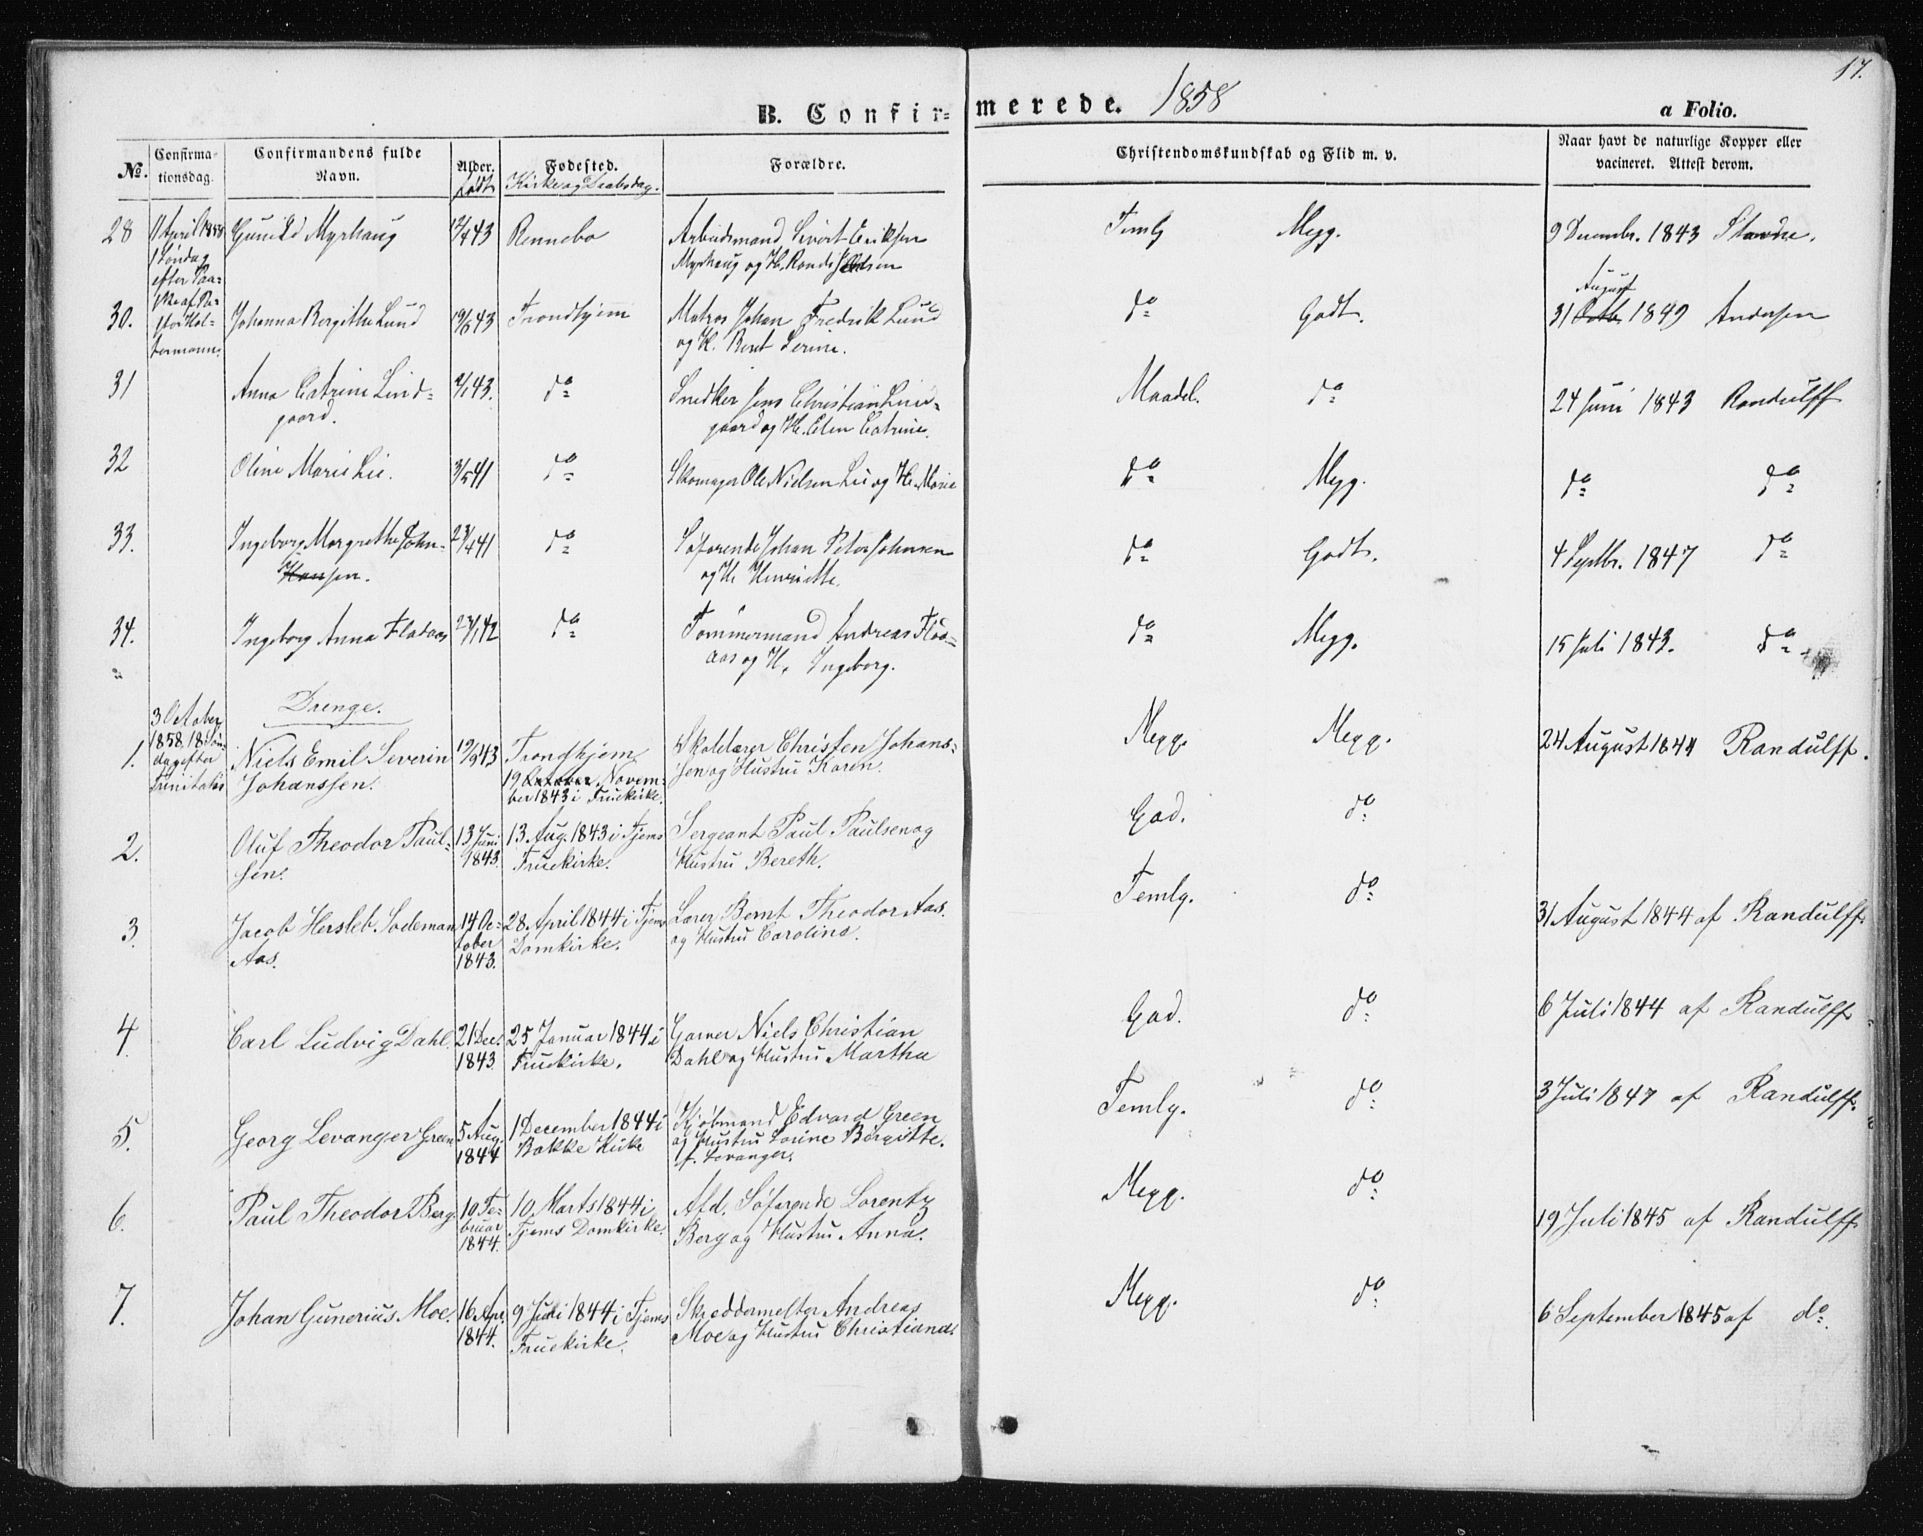 17.
B. Confir-merede. 1858
a Folio.
No.
Confirma-
tionsdag.
Confirmandens fulde
Navn.
Alder.
født
Fødested.
Kirke og Daabsdag.
Forældre.
Christendomskundskab og Flid m. v.
Naar havt de naturlige Kopper eller
vaccineret. Attest derom.
11 April 1858
1 Søndag
efter Paa-
28 Gunild Myrhaug 43 Rennebo Arbeidsmand Sivert Eriksen
Myrhaug og H. Rande
Temlg Megg. 9 Decembr. 1843
30. Johanna Bergithe Lund 43 Trondhjem Matros Johan Fredrik Lund
og H. Berit Serine.
do Godt. 31 Octb. August 1849 Andersen
31 Anna Catrine Lind-
gaard. 43. do Snedker Jens Christian Lind-
gaard og H. Elen Catrine.
Maadel. do 24 Juni 1843 Randulff
32 Oline Marie Lie. 3/5 41 do Skomager Ole Nielsen Lie og H. Marie
do Megg. do do
33. Ingeborg Margrethe John-
Hansen. 23/4 41 do Søfarende Johan Peter Johnsen
og H. Henriette.
do Godt. 4 Septbr. 1847 do
34. Ingeborg Anna Flodaas 42 do Tømmermand Andreas Floa-
aas og H. Ingeborg.
do Megg. 15 Juli 1843. do
3 October
1858. 18 Søn-
dag efter
Trinitatis
Drenge.
1. Niels Emil Severin
Johanssen. 19/9 43 Trondhjem
19 October Novem-
ber 1843 i Fruekirke.
Skolelærer Christen Johans-
sen og Hustru Karen.
Megg. Megg. 24 August 1844 Randulff.
2. Oluf Theodor Paul-
sen. 13 Juni
1843. 13. Aug. 1843 i Tjems
Fruekirke.
Sergeant Paul Paulsen og
Hustru Bereth.
God. do
3. Jacob Hersleb Sodeman
Aas. 14 Oc-
tober
1843. 28. April 1844 i Tjems
Domkirke.
Bernt Theodor Aas.
og Hustru Caroline.
Temlg. do 31 August 1844 af Randulff.
4. Carl Ludvig Dahl. 21 Dec.
1843. 25 Januar 1844 i
Fruekirke.
Garver Niels Christian
Dahl og Hustru Martha
God. do 6 Juli 1844 af Randulff.
5. Georg Levanger Green 5 Aug.
1844 1 December 1844 i
Bakke Kirke
Kjøbmand Edvard Green
og Hustru Lorine Birgitte.
f. Levanger.
Temlg. do 3 Juli 1847 af Randulff.
6. Paul Theodor Berg 10 Fe-
bruar
1844. 10. Marts 1844 i
Tjems Domkirke.
Afd. Søfarende Lorentz
Berg og Hustru Anna.
Megg. do 19 Juli 1845 af Randulff
7. Johan Gunerius Moe. 16 Apr.
1844. 9 Juli 1844 i Tjems
Fruekirke.
Skreddermester Andreas
Moe og Hustru Christiane.
Megg. do 6 September 1845 af do.